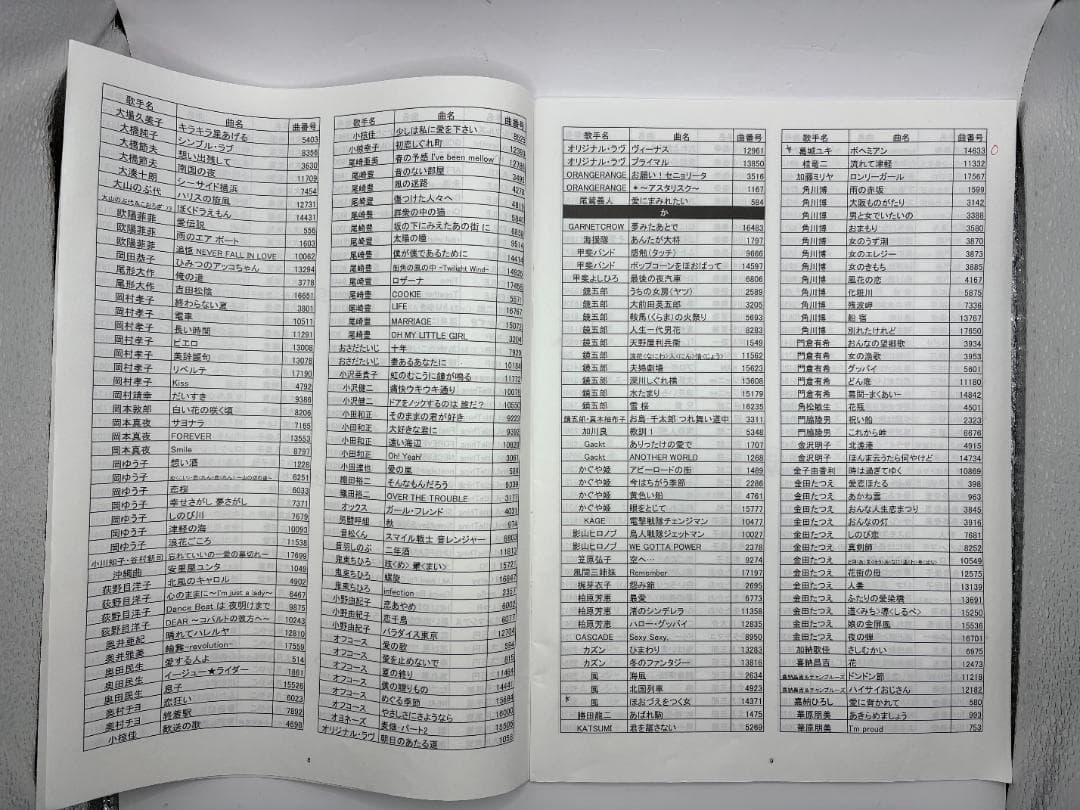 歌手名 曲名 曲番号
大場久美子 キラキラ星あげる 5403
大橋純子 シンプル・ラブ 8356
大橋節夫 想い出残して 3630
大橋節夫 南国の夜 11709
大湊十朗 シーサイド横浜 7454
大山のぶ代 ハリスの旋風 12731
ぼくドラえもん 14431
欧陽菲菲 愛伝説 556
欧陽菲菲 雨のエアポート 1603
欧陽菲菲 追憶 NEVER FALL IN LOVE 10062
岡田恭子 ひみつのアッコちゃん 13294
尾形大作 俺の道 3778
尾形大作 吉田松陰 16651
岡村孝子 終わらない夏 3801
岡村孝子 電車 10511
岡村孝子 長い時間 11291
岡村孝子 ピエロ 13008
岡村孝子 美辞麗句 13078
岡村孝子 リベルテ 17190
岡村孝子 Kiss 4792
岡村靖幸 だいすき 9386
岡本敦郎 白い花の咲く頃 8206
岡本真夜 サヨナラ 7165
岡本真夜 FOREVER 13553
岡本真夜 Smile 8797
岡ゆう子 想い酒 1228
岡ゆう子 6251
岡ゆう子 恋桜 6033
岡ゆう子 幸せさがし 夢さがし 7371
岡ゆう子 しのび川 7679
岡ゆう子 津軽の海 10093
岡ゆう子 浪花ごころ 11538
小川知子・谷村新司 忘れていいの-愛の幕切れ- 17699
沖縄曲 安里屋ユンタ 1049
荻野目洋子 北風のキャロル 4902
荻野目洋子 心のままに～I'm just a lady～ 6467
荻野目洋子 Dance Beat は 夜明けまで 9875
荻野目洋子 DEAR ～コバルトの彼方へ～ 10243
奥井亜紀 晴れてハレルヤ 12810
奥井雅美 輪舞-revolution- 17559
奥田民生 愛する人よ 514
奥田民生 イージュー★ライダー 1861
奥田民生 息子 15526
奥村チヨ 恋狂い 6023
奥村チヨ 終着駅 7892
小椋佳 歓送の歌 4698
8
歌手名 曲名 曲番号
小椋佳 少しは私に愛を下さい
小桜幸子 初恋しぐれ町
尾崎亜美 春の予感 I've been mellow
尾崎豊 音のない部屋
尾崎豊 風の迷路
尾崎豊 傷つけた人々へ
尾崎豊 群衆の中の猫
尾崎豊 坂の下にみえたあの街に
尾崎豊 太陽の瞳
尾崎豊 僕が僕であるために
尾崎豊 街角の風の中 ~Twilight Wind~
尾崎豊 ロザーナ
尾崎豊 COOKIE
尾崎豊 LIFE
尾崎豊 MARRIAGE
尾崎豊 OH MY LITTLE GIRL
おさだたいじ 十年
おさだたいじ 妻あるあなたに
小沢亜貴子 虹のむこうに鐘が鳴る
小沢健二 痛快ウキウキ通り
小沢健二 ドアをノックするのは 誰だ?
小田和正 そのままの君が好き
小田和正 大好きな君に
小田和正 遠い海辺
小田和正 Oh! Yeah!
小田達也 愛の嵐
織田裕二 そんなもんだろう
織田裕二 OVER THE TROUBLE
オックス ガール・フレンド
男闘呼組 秋
音松くん スマイル戦士 音レンジャー
音羽しのぶ 二年酒
鬼束ちひろ 眩(くめ)暈(まい)
鬼束ちひろ 螺旋
鬼束ちひろ infection
小野由紀子 恋あやめ
小野由紀子 恋千鳥
オフコース パラダイス東京
オフコース 愛の歌
オフコース 愛を止めないで
オフコース 夏の終り
オフコース 僕の贈りもの
オフコース めぐる季節
オフコース やさしさにさようなら
オヨネーズ 麦畑・パート2
オリジナル・ラヴ 朝日のあたる道
歌手名 曲名 曲番号
オリジナル・ラヴ ヴィーナス 12961
オリジナル・ラヴ プライマル 13850
ORANGERANGE お願い!セニョリータ 3516
ORANGERANGE *～アスタリスク～ 1167
尾鷲義人 愛にまみれたい 584
か
GARNETCROW 夢みたあとで 16483
海援隊 あんたが大将 1797
甲斐バンド 感触(タッチ) 9666
甲斐バンド ポップコーンをほおばって 14597
甲斐よしひろ 最後の夜汽車 6806
鏡五郎 うちの女房(ヤツ) 2589
鏡五郎 大前田英五郎 3205
鏡五郎 鞍馬(くらま)の火祭り 5693
鏡五郎 人生一代男花 8283
鏡五郎 天野屋利兵衛 1549
鏡五郎 浪花(なにわ)人(にん)情(じょう) 11562
鏡五郎 夫婦劇場 15623
鏡五郎 深川しぐれ橋 13608
鏡五郎 水たまり 15179
鏡五郎 雪桜 16235
鏡五郎・真木柚布子 お島・千太郎 つれ舞い道中 3311
加川良 教訓I 5348
Gackt ありったけの愛で 1707
Gackt ANOTHER WORLD 1268
かぐや姫 アビーロードの街 1489
かぐや姫 今はちがう季節 2286
かぐや姫 黄色い船 4761
かぐや姫 眼をとじて 15777
KAGE 電撃戦隊チェンジマン 10477
影山ヒロノブ 鳥人戦隊ジェットマン 10027
影山ヒロノブ WE GOTTA POWER 2378
笠原弘子 空へ… 9274
風間三姉妹 Remember 17197
梶芽衣子 怨み節 2695
柏原芳恵 最愛 6773
柏原芳恵 渚のシンデレラ 11358
柏原芳恵 ハロー・グッバイ 12835
CASCADE Sexy Sexy, 8950
カズン ひまわり 13283
カズン 冬のファンタジー 13816
風 海風 2634
風 北国列車 4923
風 ほおづえをつく女 14371
勝田龍二 あばれ駒 1475
KATSUMI 君を譲さない 5269
9
歌手名 曲名 曲番号
葛城ユキ ボヘミアン 14633
桂竜二 流れて津軽 11332
加藤ミリヤ ロンリーガール 17567
角川博 雨の赤坂 1599
角川博 大阪ものがたり 3142
角川博 男と女でいたいの 3388
角川博 おまもり 3580
角川博 女のうず潮 3870
角川博 女のエレジー 3873
角川博 女のきもち 3885
角川博 風花の恋 4167
角川博 花筏川 5875
角川博 残波岬 7336
角川博 船宿 13767
角川博 別れたけれど 17650
門倉有希 おんなの望郷歌 3934
門倉有希 女の漁歌 3953
門倉有希 グッバイ 5601
門倉有希 どん底 11180
門倉有希 幕間-まくあい- 14842
角松敏生 花瓶 4501
門脇陸男 祝い船 2323
門脇陸男 これから峠 6676
金沢明子 北漁港 4915
金沢明子 ほんま云うたら何やけど 14734
金子由香利 時は過ぎてゆく 10869
金田たつえ 愛恋ほたる 398
金田たつえ あかね雲 963
金田たつえ おんな人生恋まつり 3845
金田たつえ おんなの灯 3916
金田たつえ しのび恋 7681
金田たつえ 真剣師 8252
金田たつえ 10549
金田たつえ 花街の母 12575
金田たつえ 人妻 13139
金田たつえ ふたりの愛染橋 13691
金田たつえ 道<みち>導<しるべ> 15250
金田たつえ 娘の金屏風 15536
金田たつえ 夜の蝉 16701
加納敬佳 さしむかい 6975
喜納昌吉 花 12473
喜納昌吉&チャンプルーズ ドンドン節 11219
喜納昌吉&チャンプルーズ ハイサイおじさん 12182
嘉納ひろし 愛に背かれて 580
華原朋美 あきらめましょう 993
華原朋美 I'm proud 753